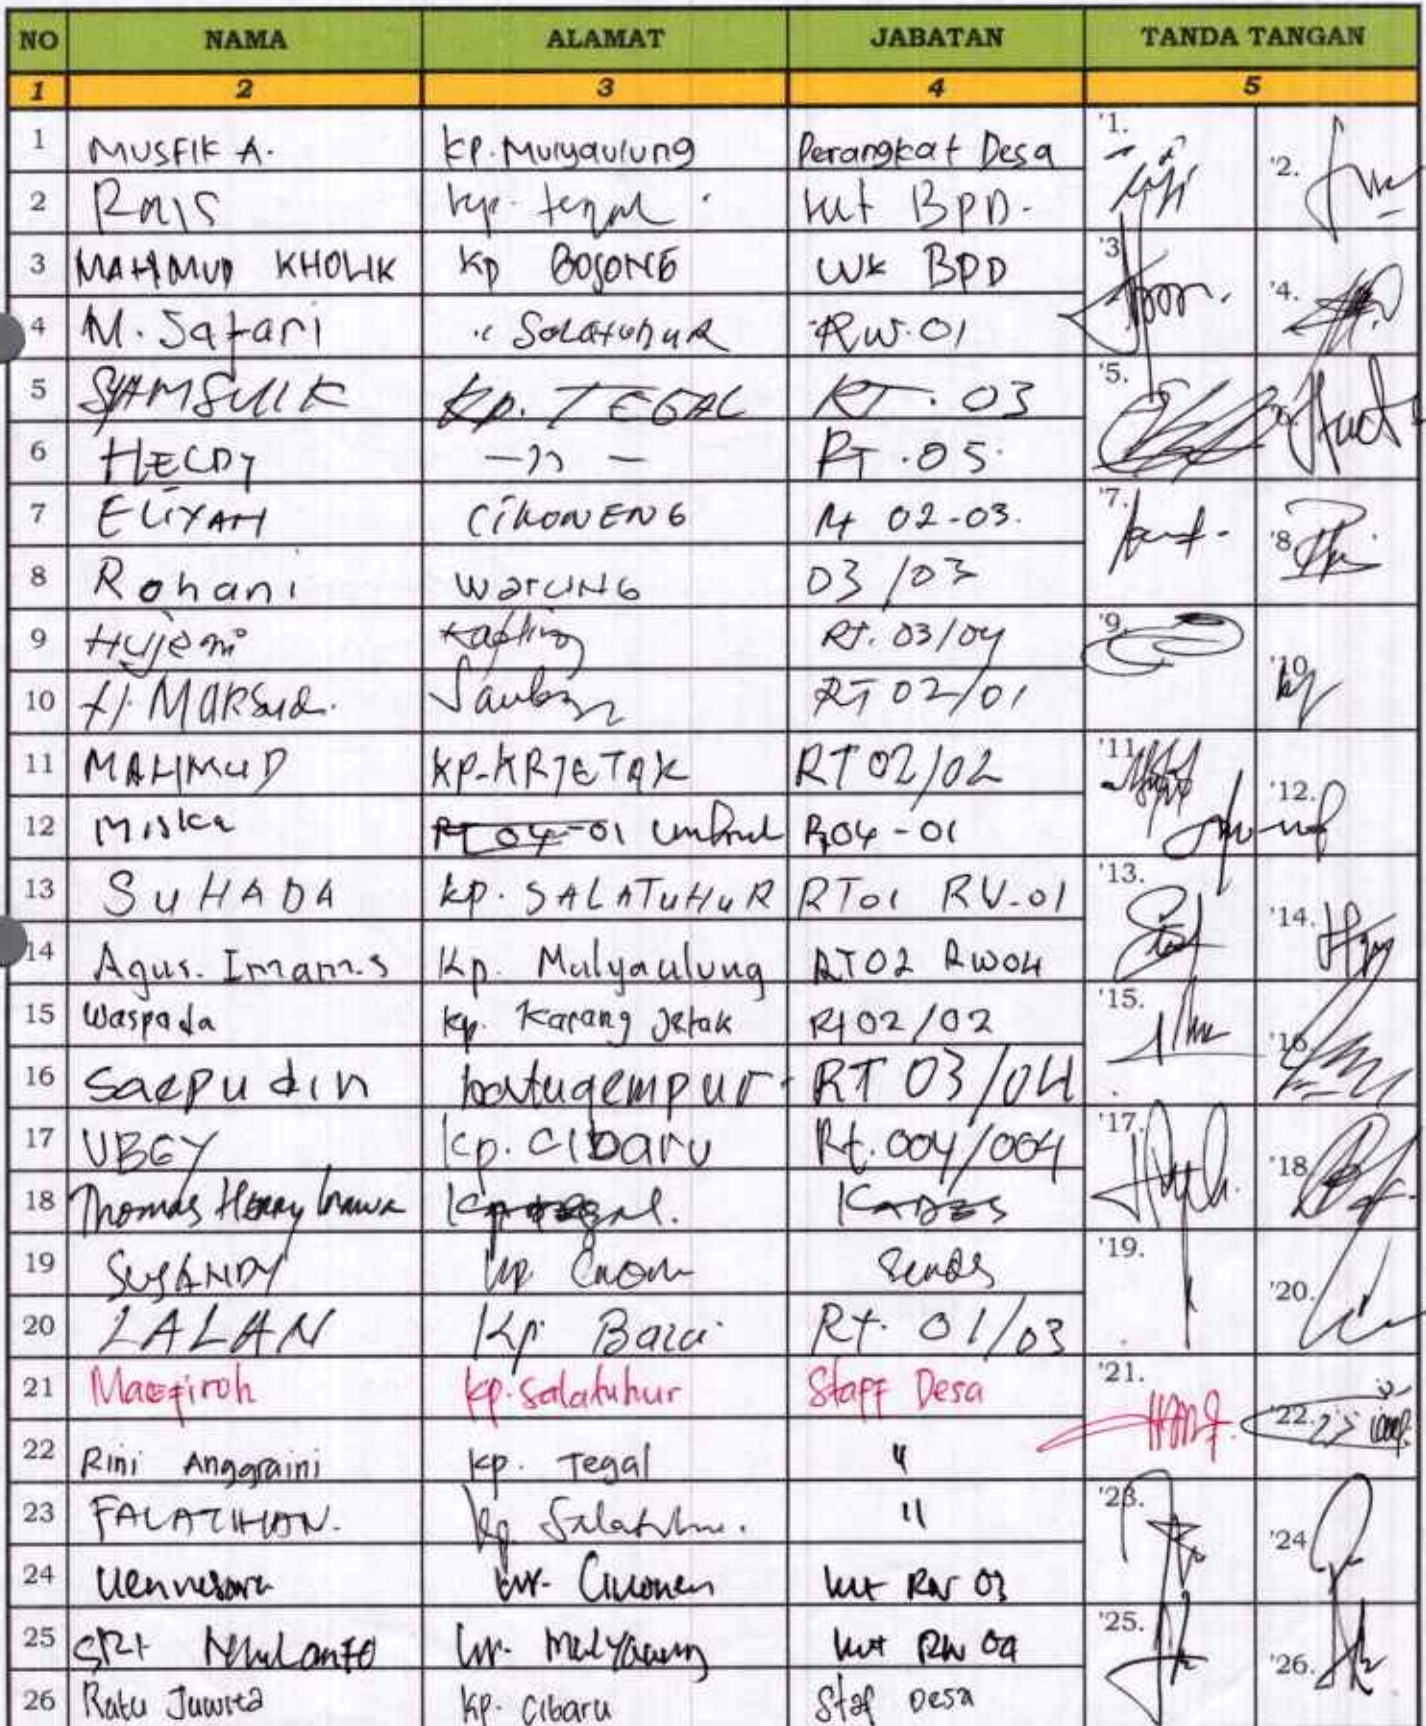 NO NAMA ALAMAT JABATAN TANDA TANGAN
1 2 3 4 5
1 MUSFIK A. Kp. Mulyaulung Perangkat Desa '1.
2 Rais kp. tegal ket BPD. '2.
3 MAHMUD KHOLIK Kp BOJONG WK BPD '3
4 M. Safari Salatuhur RW.01 '4.
5 SYAMSUL K Kp. TEGAL RT. 03 '5.
6 HECDY —〃— RT.05
7 ELIYAH CIKONENG Rt 02-03. '7.
8 Rohani WarUNG 03/03 '8
9 Hujemi Kapling Rt. 03/04 '9.
10 H. MAKSUD. RT 02/01 '10
11 MAHMUD KP-KRJETAK RT 02/02 '11
12 Miska RT 04-01 Rt04-01 '12.
13 SUHADA kp. SALATUHUR RT01 RW-01 '13.
14 Agus. Imam.s Kp. Mulyaulung RT02 RW04 '14.
15 Waspada kp. Karang Jetak Rt02/02 '15.
16 Saepudin batugempur RT 03/04 '16
17 UBGY Kp. Cibaru Rt. 004/004 '17.
18 Thomas Henry Kp KADES '18
19 SUSANDY kp. Sekdes '19.
20 LALAN Kp. Baru Rt. 01/03 '20.
21 Maefiroh kp. Salatuhur Staff Desa '21.
22 Rini Anggraini kp. Tegal 〃 '22.
23 FALATIHAN. kp Salatuhur. 〃 '23.
24 kp. Cikonen ket RW 03 '24
25 SRI kp. Mulyaulung ket RW 04 '25.
26 Ratu Juwita kp. Cibaru Staf Desa '26.